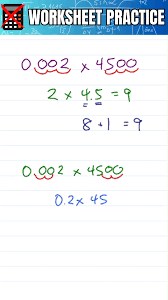 WORKSHEET PRACTICE
0.002 × 4500
2 × 4.5 = 9
8 + 1 = 9
0.002 × 4500
0.2 × 45